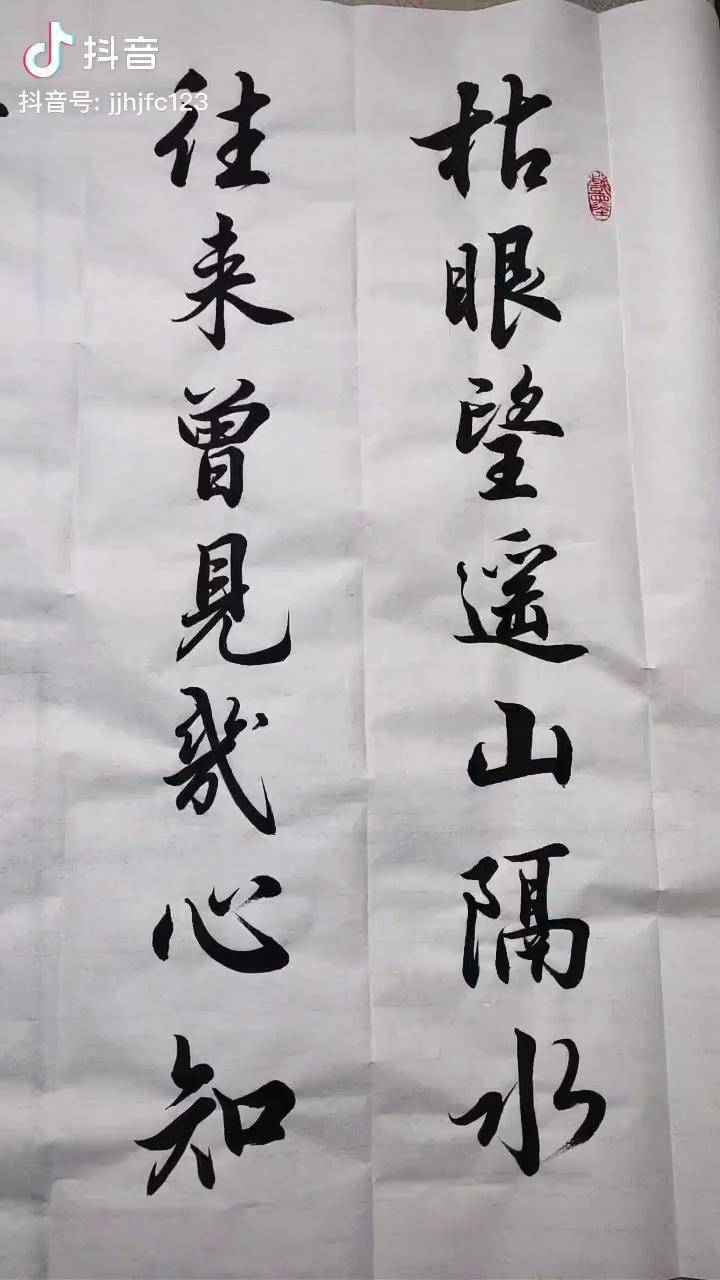 抖音
抖音号: jjhjfc123
枯眼望遥山隔水
往来曾見幾心知